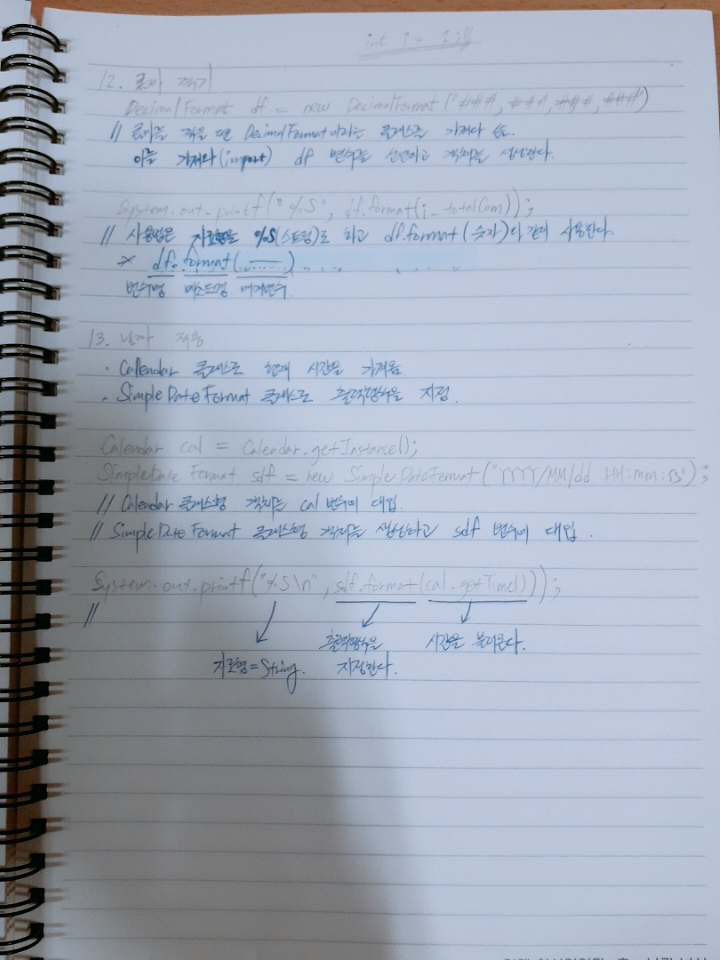 int i =
12. 콤마 찍기
DecimalFormat df = new DecimalFormat("###,###,###,###")
// 콤마를 찍을 땐 DecimalFormat이라는 클래스를 가져다 씀.
이를 가져와(import) df 변수를 선언하고 객체를 생성한다.
System.out.printf("%S", df.format(i_total(om));
// 사용법은 자료형을 %S(스트링)로 하고 df.format(숫자)와 같이 사용한다.
* df.format(......)
변수명 메소드명 매개변수
13. 날짜 적용
· Calendar 클래스로 현재 시간을 가져옴
· SimpleDateFormat 클래스로 출력형식을 지정.
Calendar cal = Calendar.getInstance();
SimpleDate Format sdf = new SimpleDateFormat("YYYY/MM/dd HH:mm:ss");
// Calendar 클래스형 객체를 cal 변수에 대입.
// SimpleDateFormat 클래스형 객체를 생성하고 sdf 변수에 대입.
System.out.printf("%S\n", sdf.format(cal.getTime()));
//
출력형식을 시간을 불러온다.
자료형=String. 지정한다.